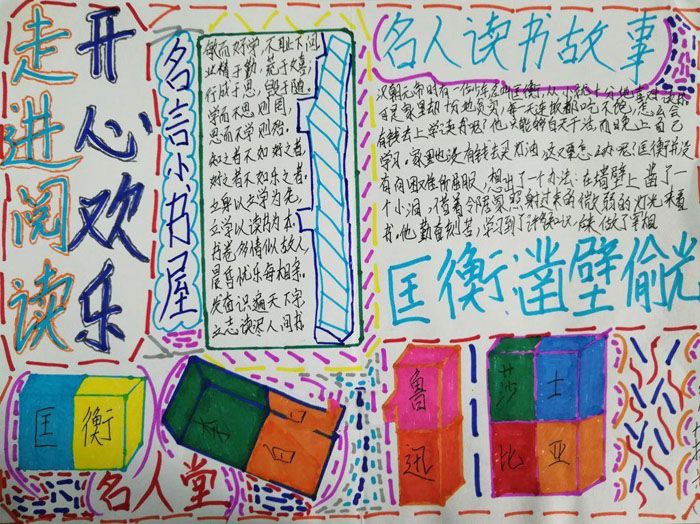 走进阅读
开心欢乐
名言小书屋
敏而好学，不耻下问
业精于勤，荒于嬉，
行成于思，毁于随。
学而不思则罔，
思而不学则殆。
知之者不如好之者，
好之者不如乐之者。
立身以立学为先，
立学以读书为本。
书卷多情似故人，
晨昏忧乐每相亲。
发奋识遍天下字
立志读尽人间书
名人读书故事
汉朝元帝时有一位
可是家里却十分贫穷，每一天连饭都吃不饱，怎么会
有钱去上学读书呢？他只能够白天干活，而晚上自己
学习，家里也没有钱去买灯油，这又要怎么办呢？匡衡并没
有向困难所屈服，想出了一个办法：在墙壁上凿了一
个小洞，借着令邻家照射过来的微弱的灯光来看
书。他勤奋刻苦，学习到了许多知识，最后做了宰相
匡衡凿壁偷光
匡衡
名人堂
鲁迅
莎士比亚